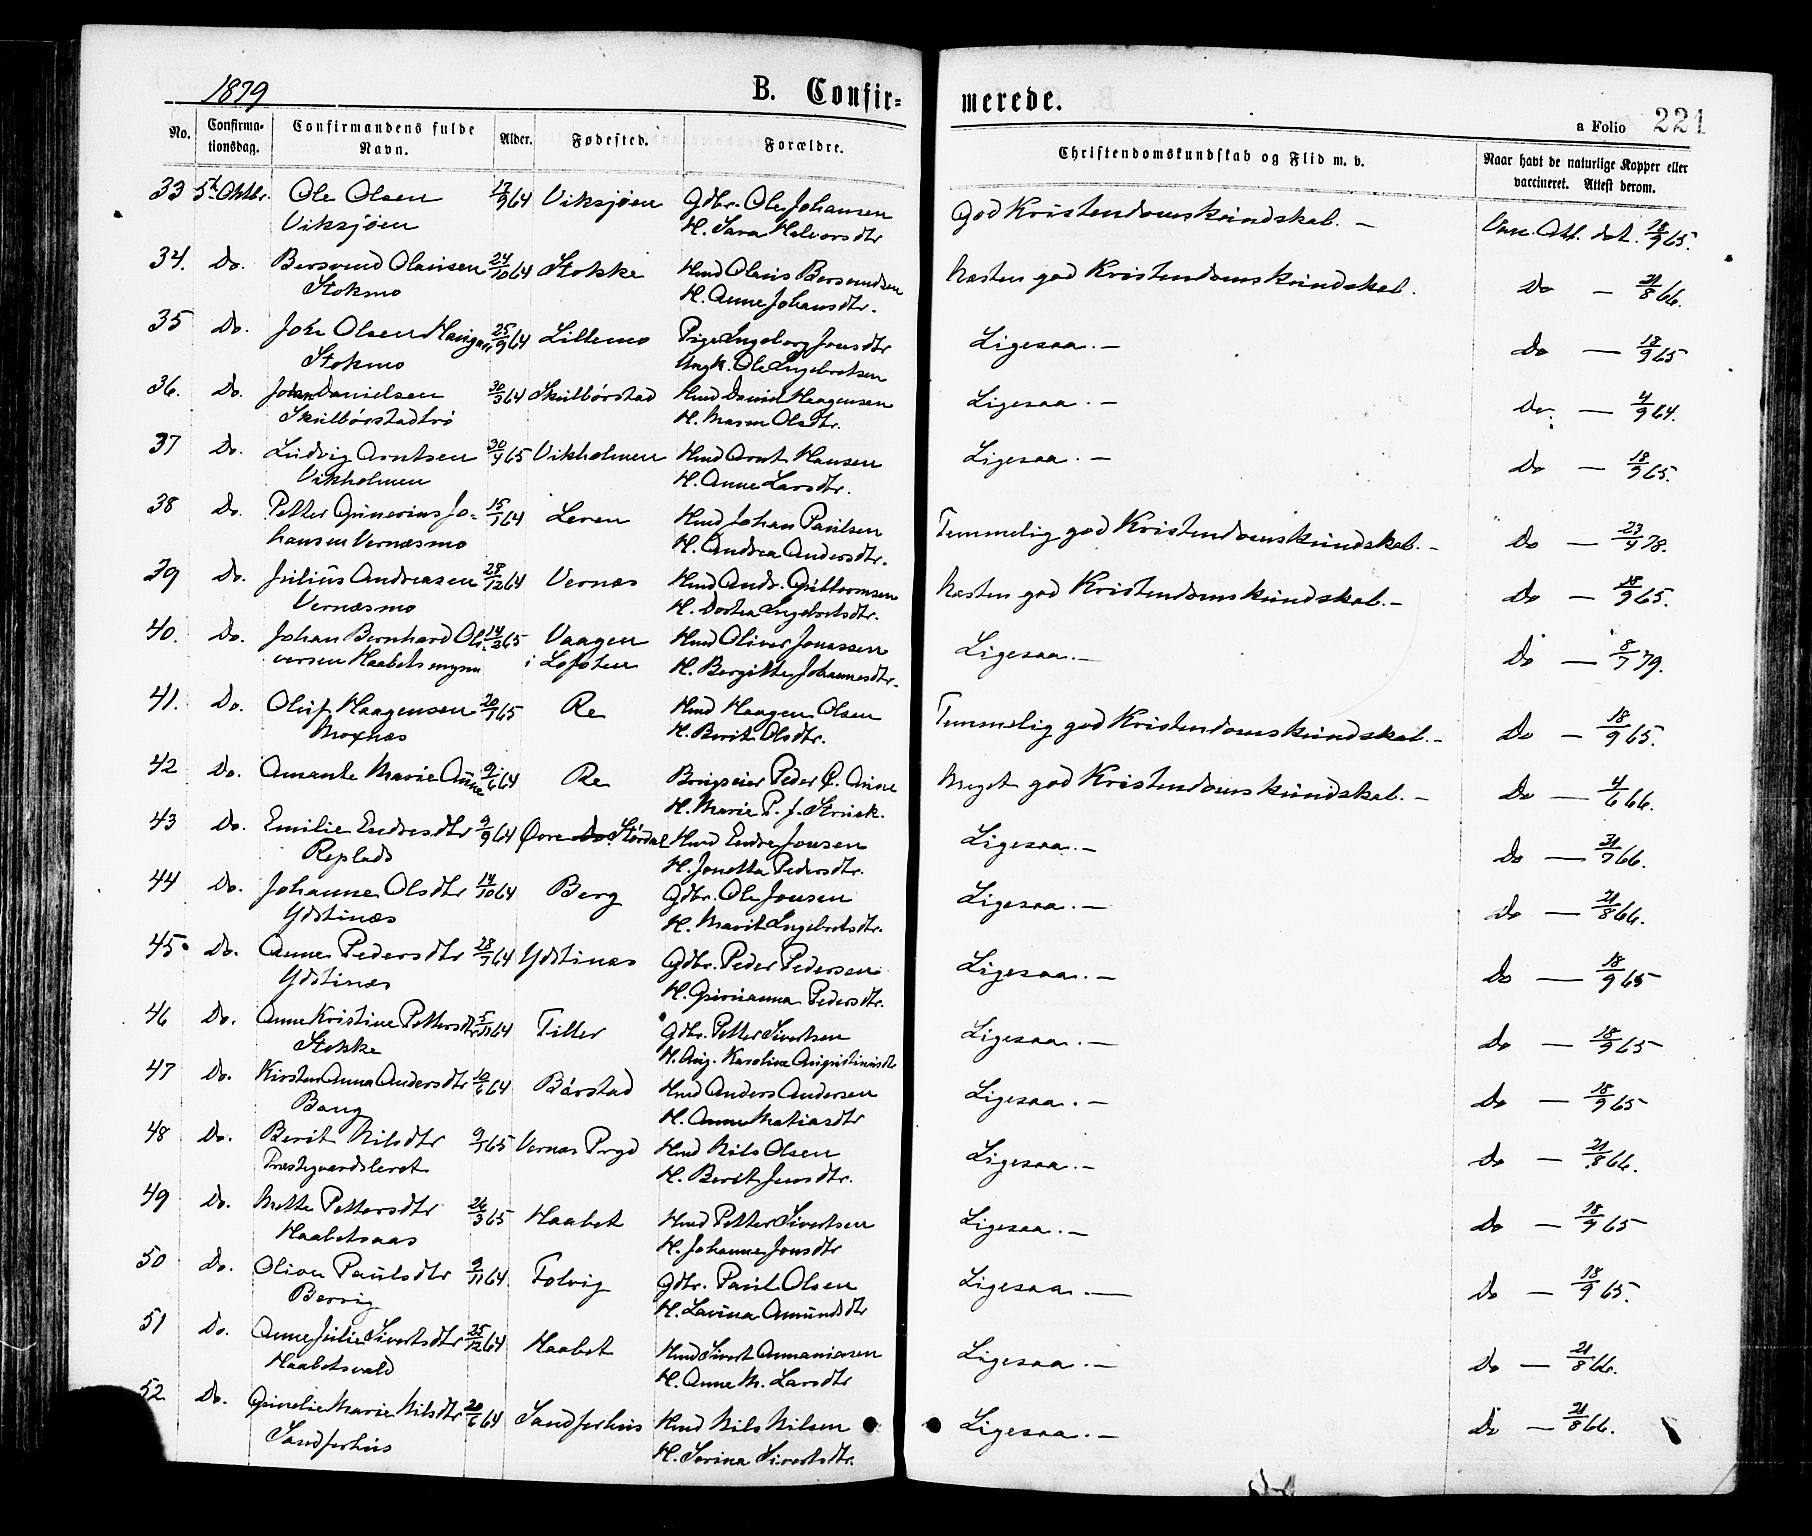 1879
B. Confir= merede.
a Folio 221
No. Confirma- tionsdag. Confirmandens fulde Navn. Alder. Fødested. Forældre. Christendomskundskab og Flid m. v. Naar havt de naturlige Kopper eller vaccineret. Attest derom.
33 5t Oktbr. Ole Olsen 17/9 64 Viksjøen Gdbr. Ole Johansen God Kristendomskundskab. – Vacc. Att. dat. 18/9 65.
Viksjøen H. Sara Halvorsdtr
34. Do. Bersvend Olausen 24/10 64 Stokke Hmd Olaus Bersvendsen Næsten god Kristendomskundskab. Do – 21/8 66.
Stokmo H. Anne Johansdtr.
35 Do. Johs Olsen Haugan 25/9 64 Lillemo Pige Ingeborg Jonsdtr Ligesaa. – Do – 18/9 65
Stokmo Ungk. Ole Ingebretsen
36. Do. Johan Danielsen 30/3 64 Skulbørstad Hmd Daniel Haagensen Ligesaa. – Do. – 4/9 64.
Skulbørstadtrø H. Maren Olsdtr.
37 Do. Ludvig Arntsen 30/4 65 Vikholmen Hmd Arnt Hansen Ligesaa. – Do – 18/9 65.
Vikholmen H. Anne Larsdtr.
38 Do. Petter Gunerius Jo- 15/7 64 Leren Hmd Johan Paulsen Temmelig god Kristendomskundskab. – Do – 23/4 78.
hansen Vernæsmo H. Andrea Andersdtr.
39 Do. Julius Andreasen 28/12 64 Vernæs Hmd Andr. Guttormsen Næsten god Kristendomskundskab. – Do – 18/9 65.
Vernæsmo H. Dortea Ingebretsdtr.
40. Do. Johan Bernhard Oli- 14/2 65 Vaagen Hmd Oliver Jonassen Ligesaa. – Do – 8/7 79.
versen Haabetsmyren i Lofoten H. Bergitte Johannesdtr.
41. Do. Oluf Haagensen 20/1 65 Re Hmd Haagen Olsen Temmelig god Kristendomskundskab. – Do – 18/9 65.
Moxnæs H. Berit Olsdtr.
42 Do. Amante Marie Aune 9/6 64 Re Brugseier Peder C. Aune Meget god Kristendomskundskab. – Do – 4/6 66.
H. Marie P. f. Struck.
43 Do. Emilie Endresdtr 9/9 64 Øvre Størdal Hmd Endre Jonsen Ligesaa. – Do – 31/7 66.
Replads H. Jonetta Pedersdtr.
44 Do. Johanne Olsdtr 14/10 64 Berg Gdbr. Ole Jonsen Ligesaa. – Do – 21/8 66.
Ydstinæs H. Marit Ingebretsdtr.
45 Do. Anne Pedersdtr 28/7 64 Ydstinæs Gdbr. Peder Pedersen Ligesaa. – Do – 18/9 65
Ydstinæs H. Gurianna Pedersdtr.
46 Do. Anne Kristine Pettersdtr 5/11 64 Tiller Gdbr. Petter Sivertsen Ligesaa. – Do – 18/9 65
Stokke H. Aug. Karoline Augustinusdtr
47 Do. Kirsten Anna Andersdtr 10/6 64 Børstad Hmd Anders Andersen Ligesaa. – Do – 18/9 65
Bang H. Anne Matiasdtr
48 Do. Berit Nilsdtr 9/1 65 Vernæs Prgd Hmd Nils Olsen Ligesaa. – Do – 21/8 66.
Præstegaardsleret H. Berit Jensdtr.
49 Do. Mette Pettersdtr 26/3 65 Haabet Hmd Petter Sivertsen Ligesaa. – Do – 18/9 65
Haabetsaas H. Johanne Jonsdtr
50 Do. Oline Paulsdtr 9/11 64 Folvig Gdbr. Paul Olsen Ligesaa. – Do – 18/9 65.
Bervig H. Lavina Amundsdtr
51 Do. Anne Julie Sivertsdtr 25/12 64 Haabet Hmd Sivert Annaniasen Ligesaa. – Do – 21/8 66.
Haabetsvald H. Anne M. Larsdtr
52 Do. Gunelie Marie Nilsdtr 20/6 64 Sandferhus Hmd Nils Nilsen Ligesaa. – Do – 21/8 66.
Sandferhus H. Serina Sivertsdtr.